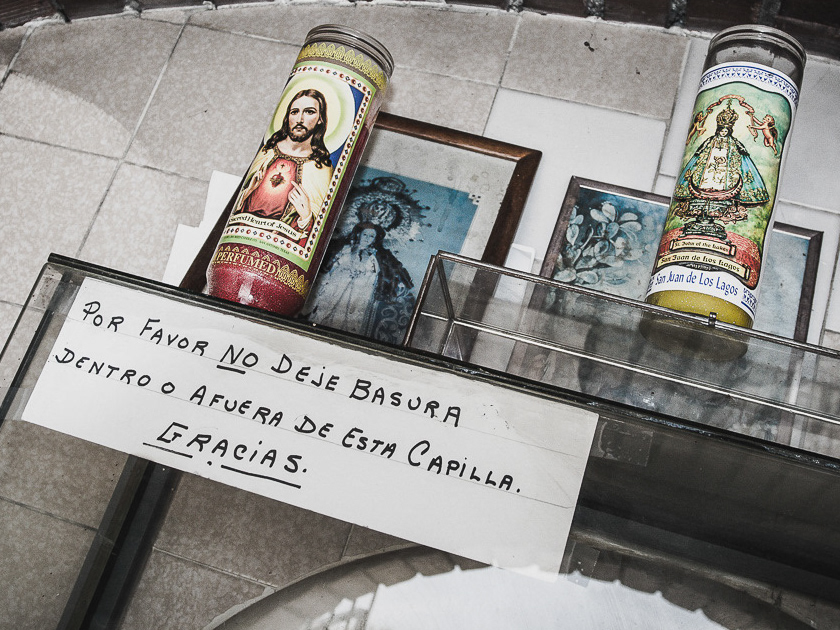 Sacred Heart of Jesus
PERFUMED
St. John of the Lakes
San Juan de Los Lagos
San Juan de Los Lagos
POR FAVOR NO DEJE BASURA
DENTRO O AFUERA DE ESTA CAPILLA.
GRACIAS.